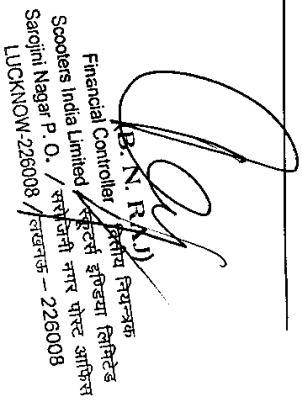 (B. N. RAJ)
Financial Controller वित्तीय नियन्त्रक
Scooters India Limited / स्कूटर्स इण्डिया लिमिटेड
Sarojini Nagar P. O. / सरोजिनी नगर पोस्ट आफिस
LUCKNOW-226008 / लखनऊ – 226008